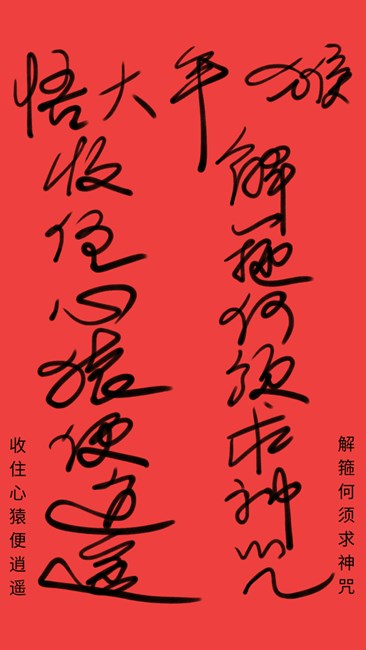 猴年大悟
解箍何须求神咒
收住心猿便逍遥
解箍何须求神咒
收住心猿便逍遥